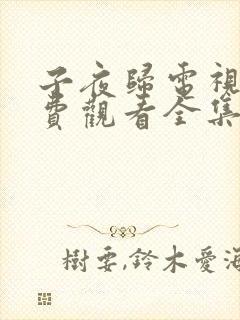 子夜歸電視
費觀看全集
樹要,鈴木愛海